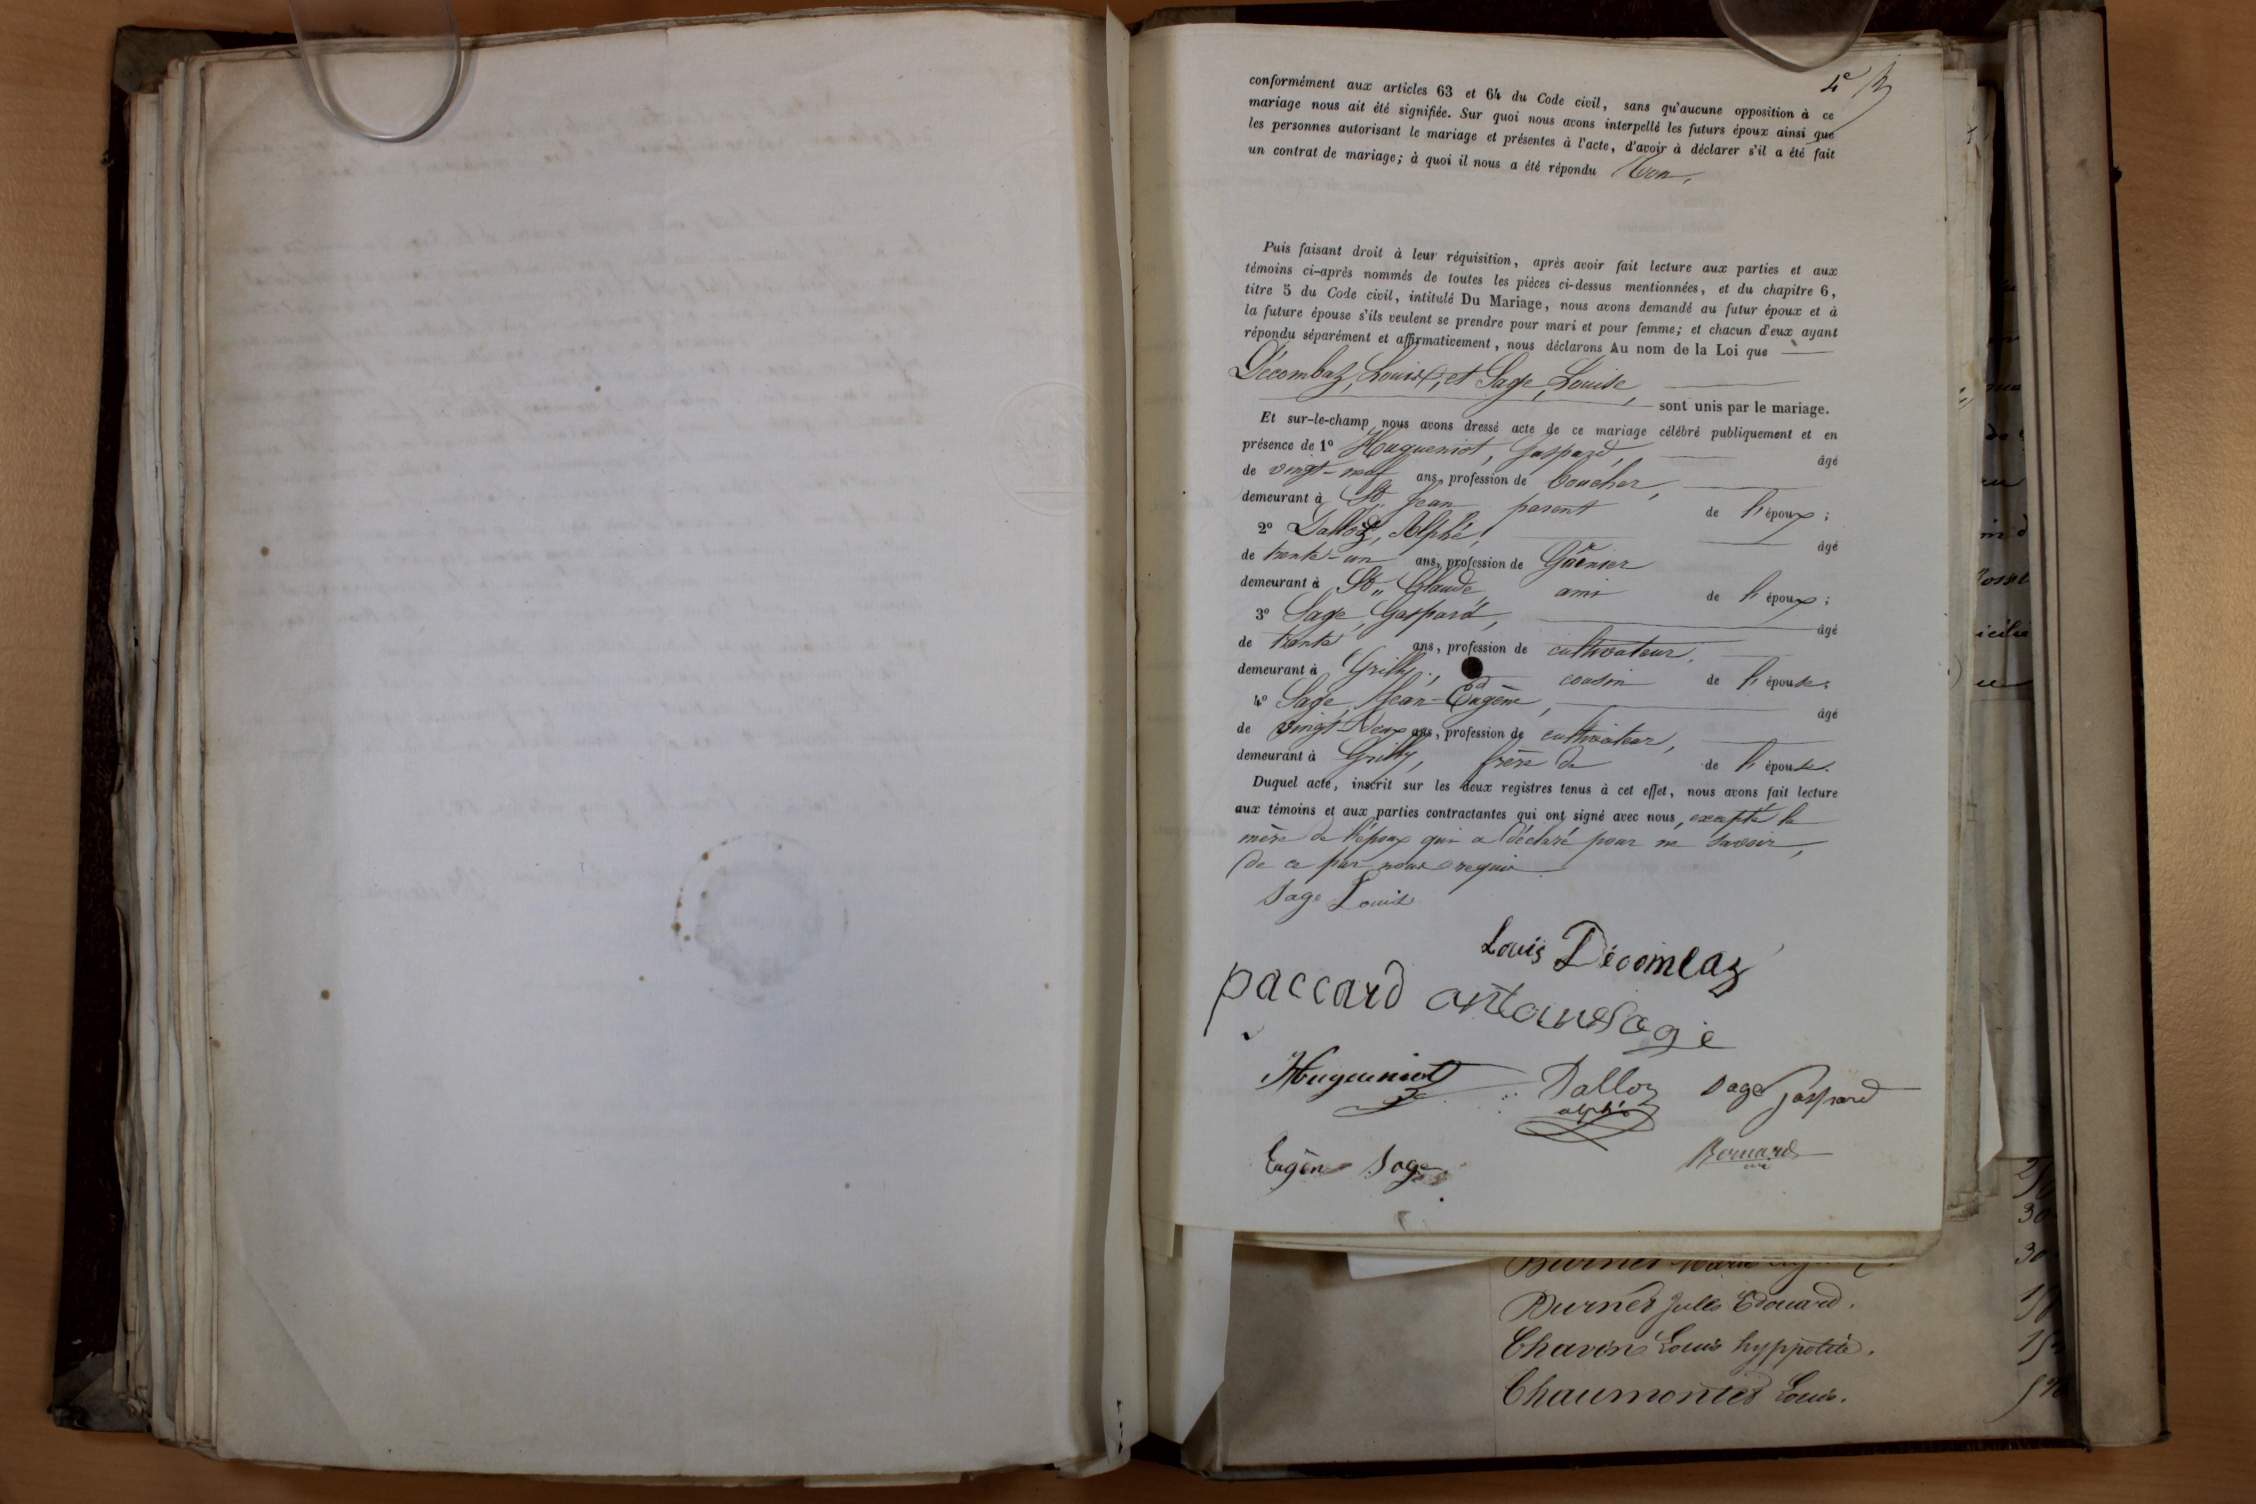 4e
conformément aux articles 63 et 64 du Code civil, sans qu'aucune opposition à ce
mariage nous ait été signifiée. Sur quoi nous avons interpellé les futurs époux ainsi que
les personnes autorisant le mariage et présentes à l'acte, d'avoir à déclarer s'il a été fait
un contrat de mariage; à quoi il nous a été répondu Non.
Puis faisant droit à leur réquisition, après avoir fait lecture aux parties et aux
témoins ci-après nommés de toutes les pièces ci-dessus mentionnées, et du chapitre 6,
titre 5 du Code civil, intitulé Du Mariage, nous avons demandé au futur époux et à
la future épouse s'ils veulent se prendre pour mari et pour femme; et chacun d'eux ayant
répondu séparément et affirmativement, nous déclarons Au nom de la Loi que
Décombaz, Louis, et Sage, Louise,
sont unis par le mariage.
Et sur-le-champ nous avons dressé acte de ce mariage célébré publiquement et en
présence de 1º Hugueniot, Gaspard, âgé
de vingt-neuf ans, profession de boucher,
demeurant à St,, Jean parent de l'époux;
2º Dalloz, Alphé, âgé
de trente-un ans, profession de
demeurant à St,, Claude, ami de l'époux;
3º Sage, Gaspard, âgé
de trente ans, profession de cultivateur,
demeurant à Grilly, cousin de l'épouse;
4º Sage, Jean-Eugène, âgé
de vingt-deux ans, profession de cultivateur,
demeurant à Grilly, frère de de l'épouse.
Duquel acte, inscrit sur les deux registres tenus à cet effet, nous avons fait lecture
aux témoins et aux parties contractantes qui ont signé avec nous, excepté la
mère de l'époux qui a déclaré pour ne savoir,
de ce par nous requis
Sage Louise
Louis Décombaz
paccard antoine sage
Hugueniot
Dalloz alphé
Sage Gaspard
Eugène Sage
Bernard
Burnet Jules Edouard.
Chavin Louis hyppolite.
Chaumontet Louis.